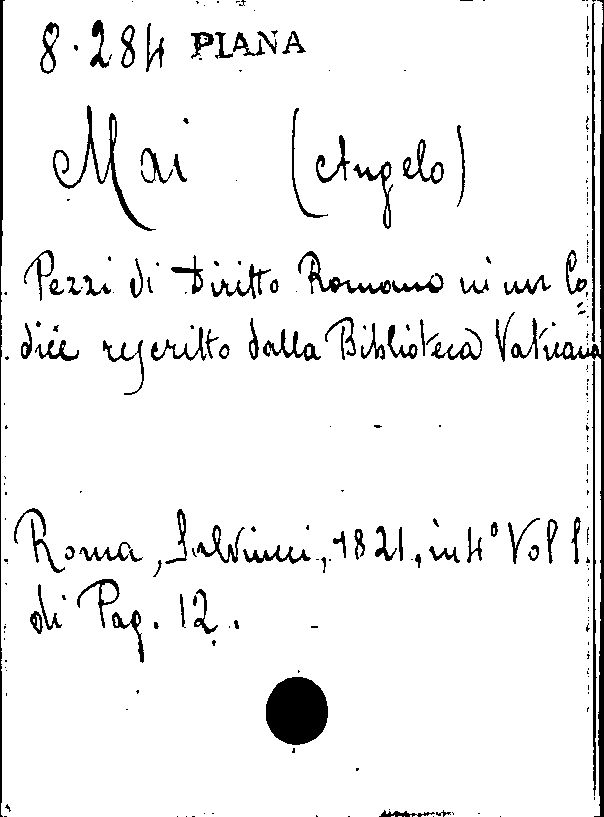 8.284 PIANA
Mai (Angelo)
Pezzi di Diritto Romano in un Co=
dice rescritto dalla Biblioteca Vaticana
Roma, Salviucci, 1821, in 4° Vol 1.
di Pag. 12.